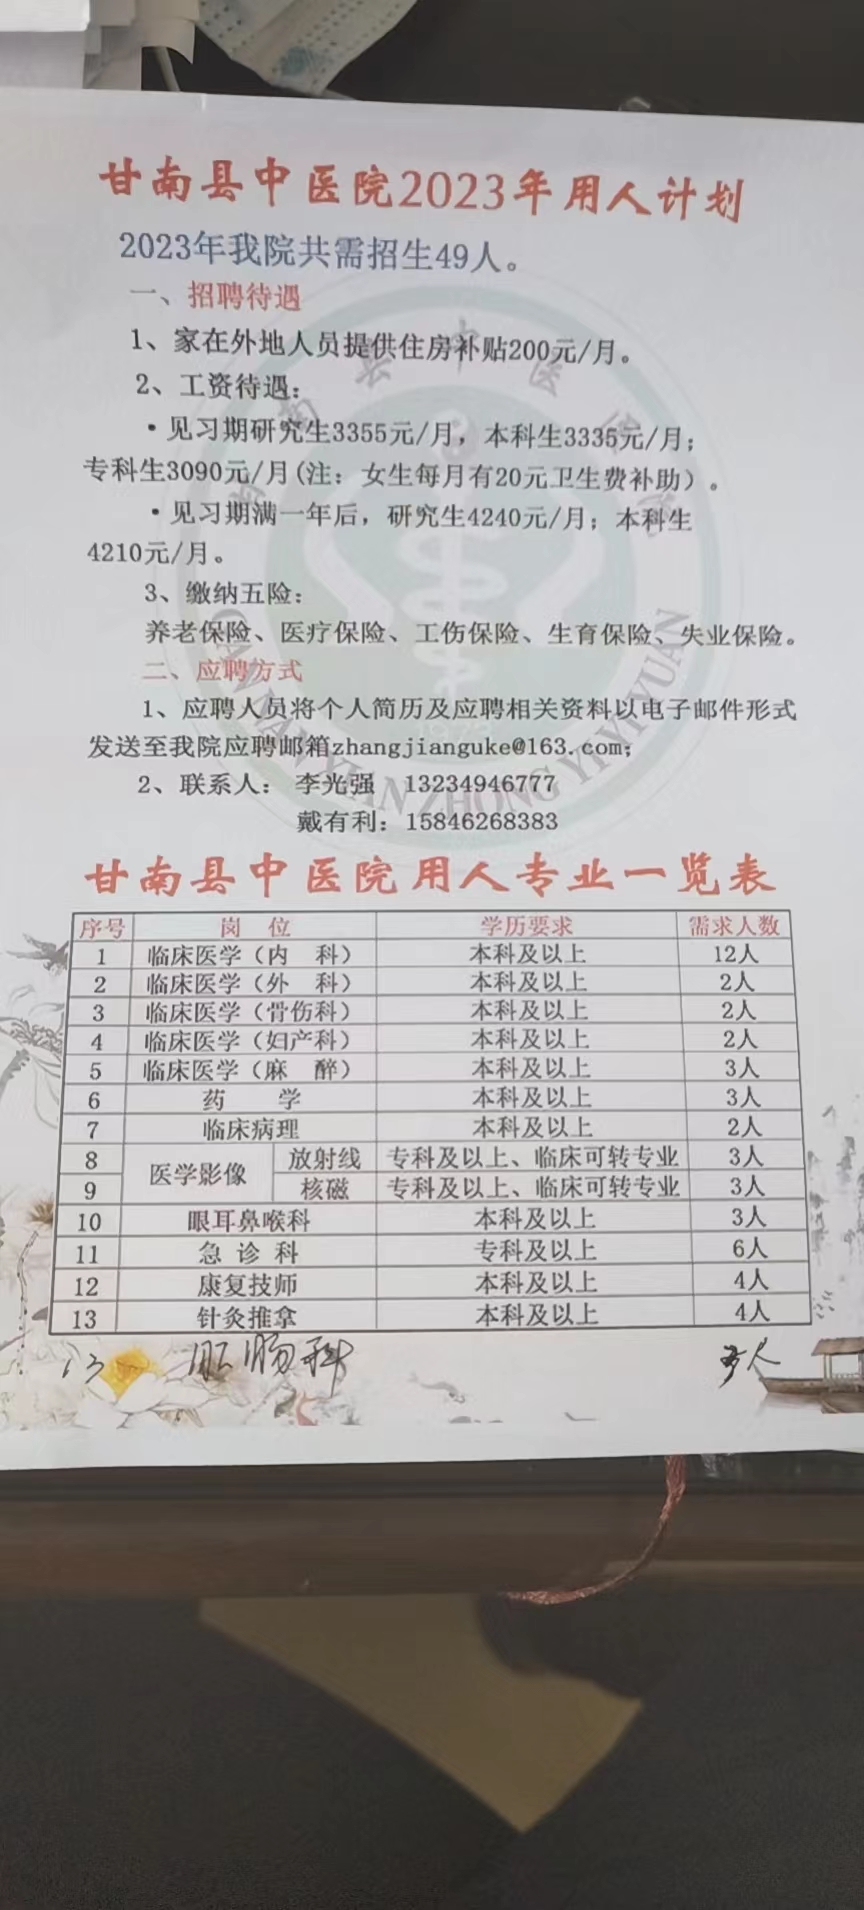 甘南县中医院2023年用人计划
2023年我院共需招生49人。
一、招聘待遇
1、家在外地人员提供住房补贴200元/月。
2、工资待遇：
·见习期研究生3355元/月，本科生3335元/月；
专科生3090元/月(注：女生每月有20元卫生费补助）。
·见习期满一年后，研究生4240元/月；本科生
4210元/月。
3、缴纳五险：
养老保险、医疗保险、工伤保险、生育保险、失业保险。
二、应聘方式
1、应聘人员将个人简历及应聘相关资料以电子邮件形式
发送至我院应聘邮箱zhangjianguke@163.com；
2、联系人： 李光强 13234946777
戴有利：15846268383
甘南县中医院用人专业一览表
序号 岗 位 学历要求 需求人数
1 临床医学（内 科） 本科及以上 12人
2 临床医学（外 科） 本科及以上 2人
3 临床医学（骨伤科） 本科及以上 2人
4 临床医学（妇产科） 本科及以上 2人
5 临床医学（麻 醉） 本科及以上 3人
6 药 学 本科及以上 3人
7 临床病理 本科及以上 2人
8 医学影像 放射线 专科及以上、临床可转专业 3人
9 核磁 专科及以上、临床可转专业 3人
10 眼耳鼻喉科 本科及以上 3人
11 急 诊 科 专科及以上 6人
12 康复技师 本科及以上 4人
13 针灸推拿 本科及以上 4人
13 肛肠科 人
甘南县中医院
GAN NAN XIAN ZHONG YI YUAN